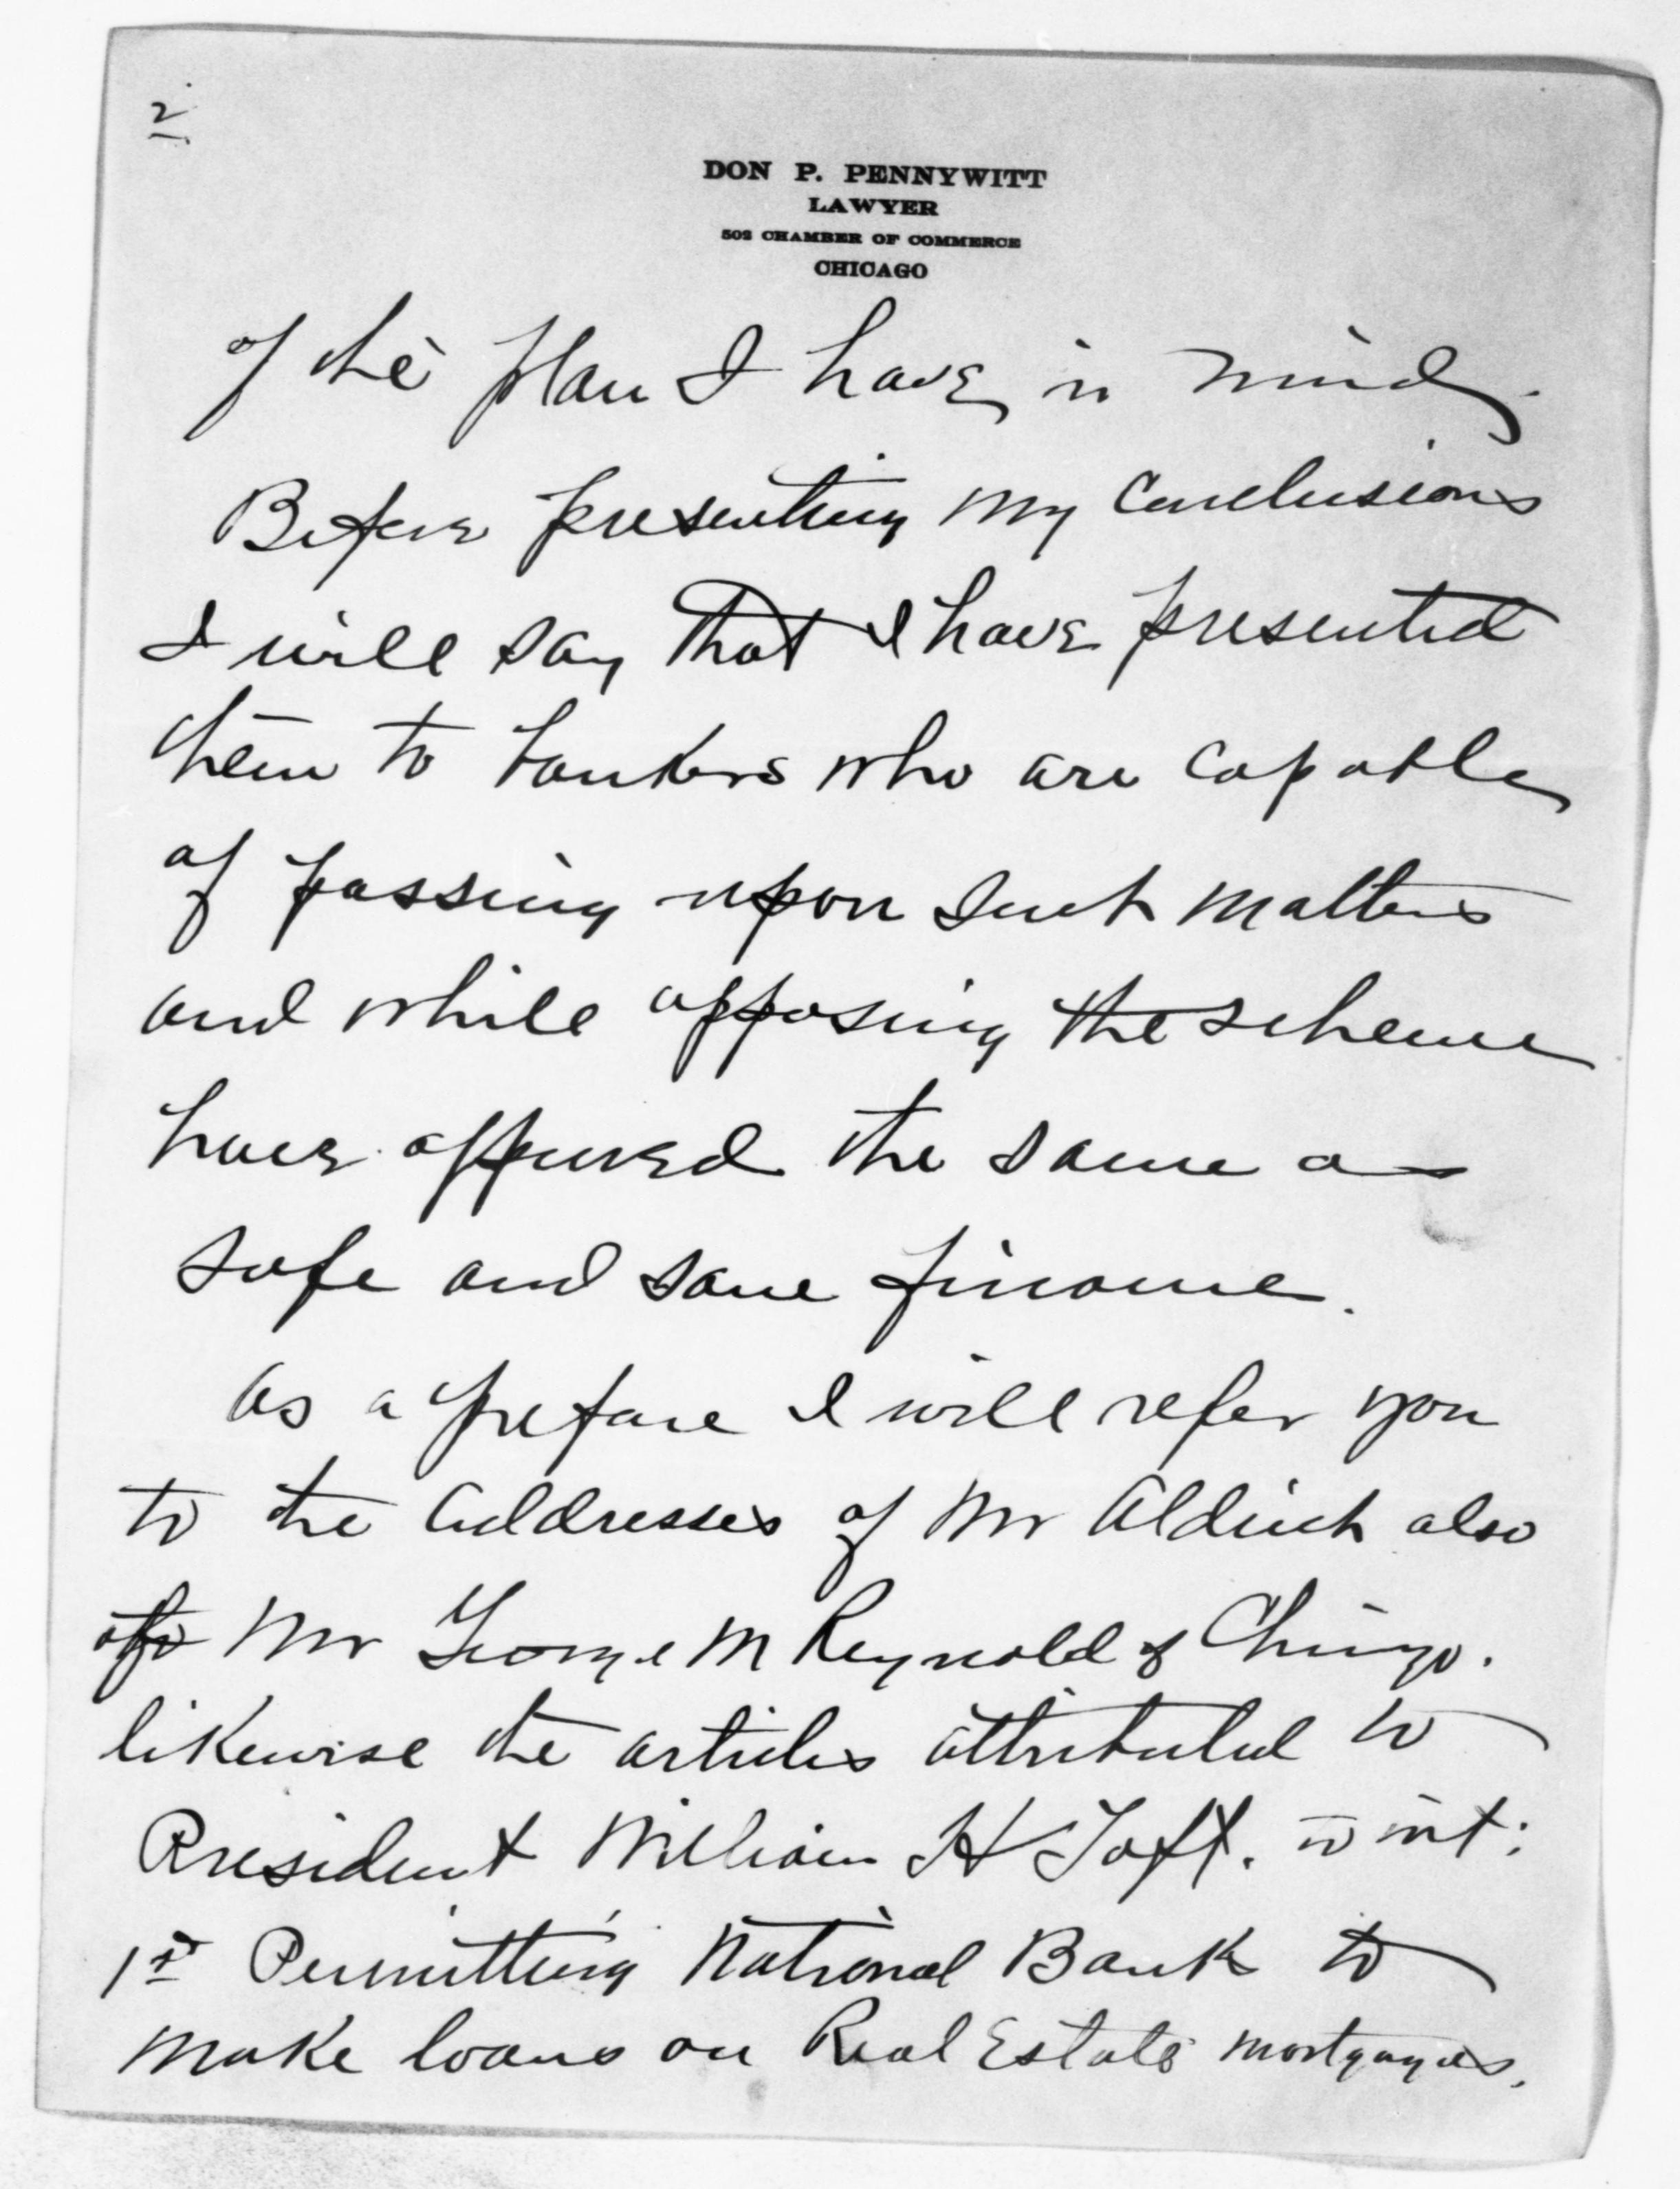 2
DON P. PENNYWITT
LAWYER
502 CHAMBER OF COMMERCE
CHICAGO
of the plan I have in mind.
Before presenting my conclusions
I will say that I have presented
them to bankers who are capable
of passing upon such matters
and while opposing the scheme
have approved the same as
safe and sane finance.
As a preface I will refer you
to the addresses of Mr Aldrich also
of Mr George M Reynold of Chicago.
likewise the articles attributed to
President William H Taft. to wit:
1st Permitting National Bank to
make loans on Real Estate mortgages.